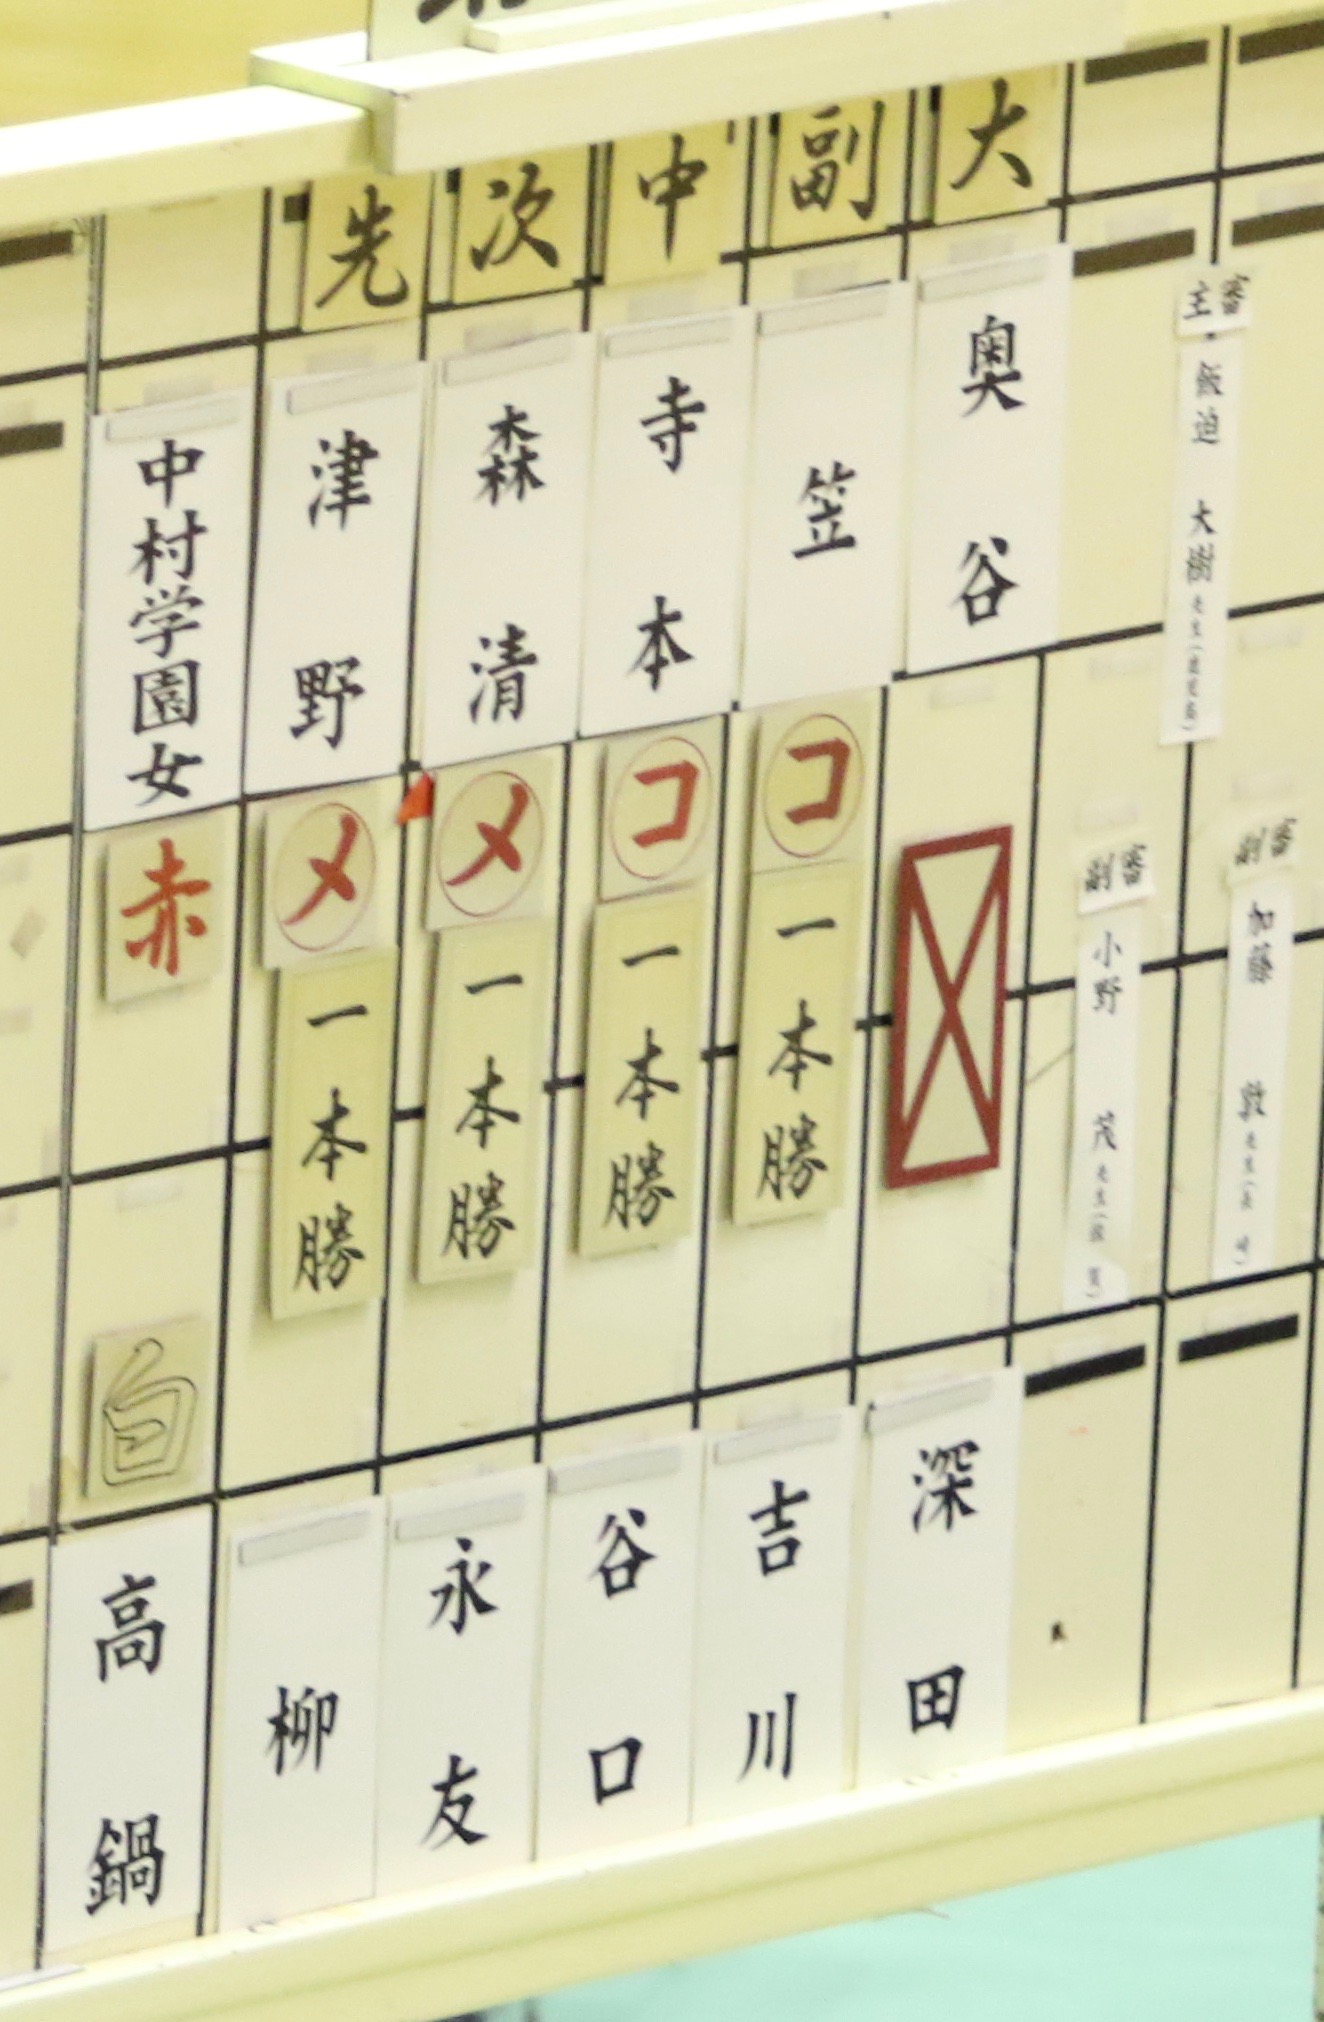 先
次
中
副
大
中村学園女
津野
森清
寺本
笠
奥谷
主審
飯迫 大樹
赤
メ
メ
コ
コ
一本勝
一本勝
一本勝
一本勝
副審
小野 茂
副審
加藤 敦
白
高鍋
柳
永友
谷口
吉川
深田